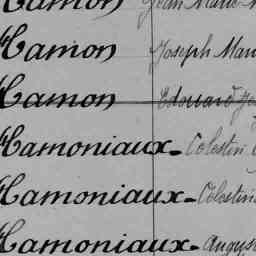 Hamon Jean Marie
Hamon Joseph Mari
Hamon Edouard Jo
Hamoniaux - Celestin
Hamoniaux - Célestin
Hamoniaux - August